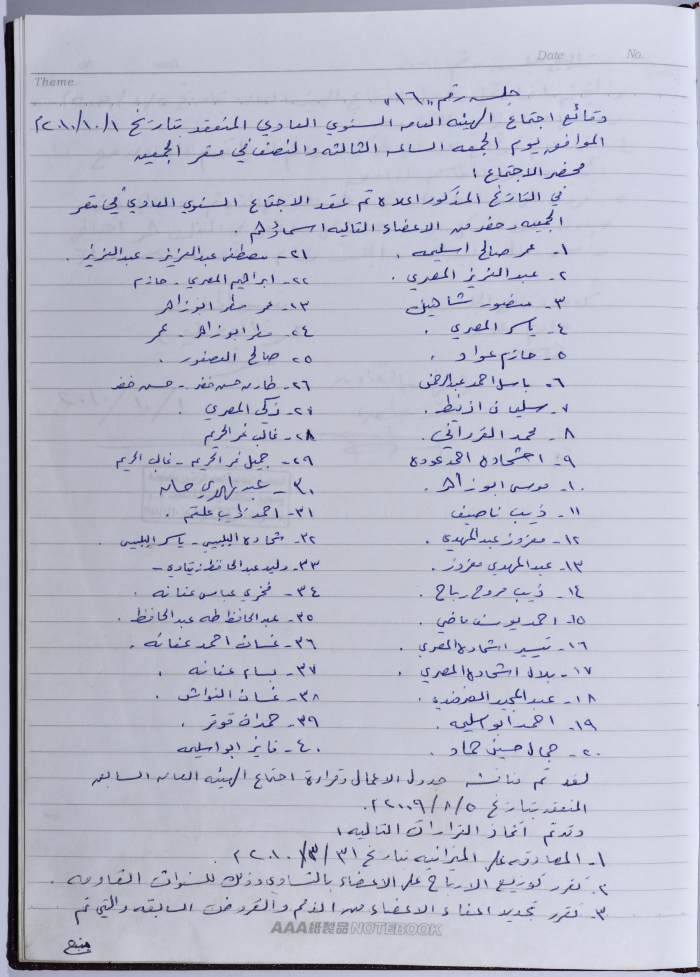 Date No.
Theme
جلسه رقم "١٦"
وقائع اجتماع الهيئه العامه السنوي العادي المنعقد بتاريخ ٢٠١٠/١٠/١
الموافق يوم الجمعه الساعه الثالثه والنصف في مقر الجمعيه
محضر الاجتماع :
في التاريخ المذكور اعلاه تم عقد الاجتماع السنوي العادي في مقر
الجمعيه وحضر من الاعضاء التاليه اسماؤهم .
١- عمر صالح اسليمه .
٢- عبد العزيز المصري .
٣- منصور شاهين
٤- ياسر المصري .
٥- حازم عواد .
٦- باسل احمد عبد الرحمن
٧- سليمان ازنيط .
٨- محمد القرراني .
٩- اشحاده احمد عوده
١٠- موسى ابو زاهر .
١١- ذيب ناصيف
١٢- معزوز عبد المهدي .
١٣- عبد المهدي معزوز .
١٤- ذيب ممدوح رباح .
١٥- احمد يوسف ماضي .
١٦- تيسير اشحاده المصري .
١٧- بلال اشحاده المصري .
١٨- عبد المجيد
١٩- احمد ابو اسليمه .
٢٠- جمال حسين حماد .
٢١- مصطفى عبد العزيز - عبد العزيز .
٢٢- ابراهيم المصري - حازم
٢٣- عمر مطر ابو زاهر
٢٤- مطر ابو زاهر - عمر
٢٥- صالح العصفور .
٢٦- طارق حسن خضر - حسن خضر
٢٧- زكي المصري .
٢٨- غالب نمر الحريم
٢٩- جميل نمر الحريم - غالب الحريم
٣٠- عبد الهادي
٣١- احمد ذيب علقم .
٣٢- شحاده البلبيسي - ياسر البلبيسي .
٣٣- وليد عبد الحافظ زيادي -
٣٤- فخري عباس عنانه .
٣٥- عبد الحافظ طه عبد الحافظ .
٣٦- غسان احمد عنانه .
٣٧- بسام عنانه .
٣٨- غسان النواش .
٣٩- حمدان قوقر .
٤٠- فايز ابو اسليمه
لقد تم مناقشه جدول الاعمال وقراءة اجتماع الهيئه العامه السابقه
المنعقد بتاريخ ٢٠٠٩/٨/٥ .
وقد تم اتخاذ القرارات التاليه :
١- المصادقه على الميزانيه بتاريخ ٢٠١٠/٣/٣١ .
٢- تقرر توزيع الارباح على الاعضاء بالتساوي وذلك للسنوات القادمه .
٣- تقرر تجديد اعفاء الاعضاء من الذمم والقروض السابقه والتي تم
يتبع
AAA紙製品NOTEBOOK